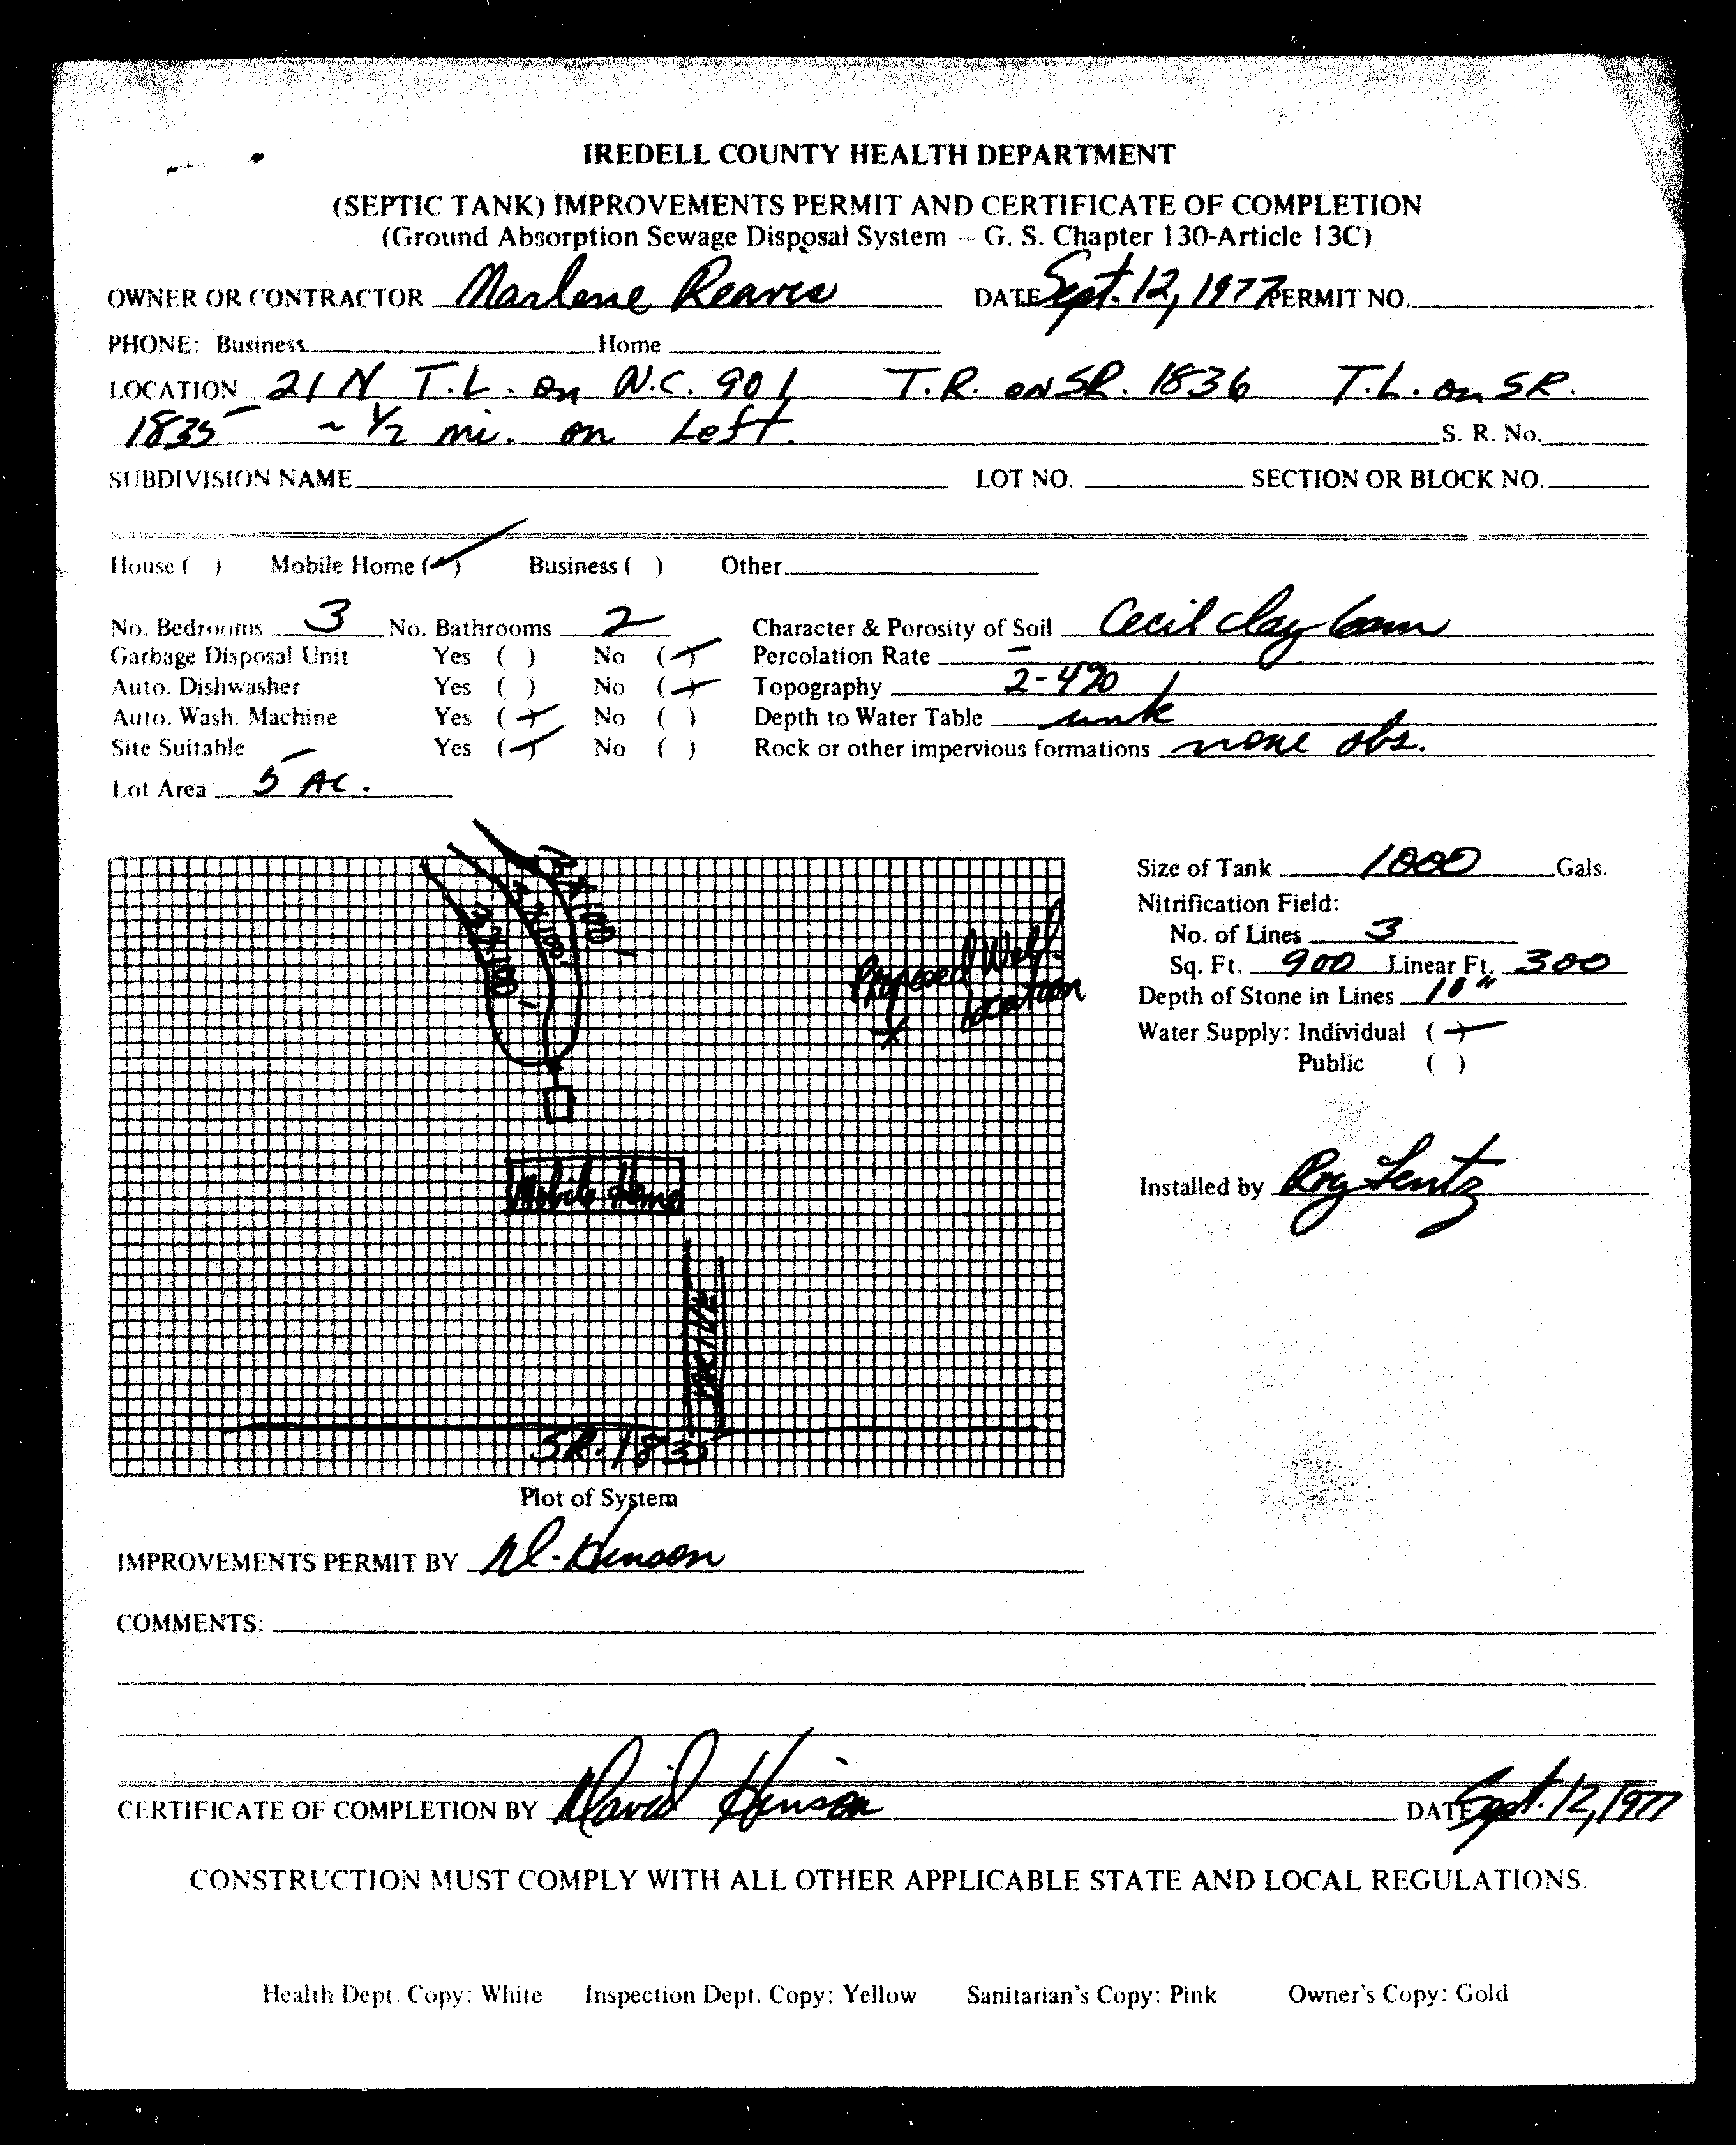 IREDELL COUNTY HEALTH DEPARTMENT
(SEPTIC TANK) IMPROVEMENTS PERMIT AND CERTIFICATE OF COMPLETION
(Ground Absorption Sewage Disposal System – G. S. Chapter 130-Article 13C)
OWNER OR CONTRACTOR Marlene Reavis DATE Sept. 12, 1977 PERMIT NO.
PHONE: Business Home
LOCATION 21 N T.L. on N.C. 901 T.R. on SR. 1836 T.L. on SR.
1835 ~ 1/2 mi. on Left. S. R. No.
SUBDIVISION NAME LOT NO. SECTION OR BLOCK NO.
House ( ) Mobile Home (✓) Business ( ) Other
No. Bedrooms 3 No. Bathrooms 2 Character & Porosity of Soil Cecil clay loam
Garbage Disposal Unit Yes ( ) No (✓) Percolation Rate –
Auto. Dishwasher Yes ( ) No (✓) Topography 2-4%
Auto. Wash. Machine Yes (✓) No ( ) Depth to Water Table unk
Site Suitable Yes (✓) No ( ) Rock or other impervious formations none obs.
Lot Area 5 AC.
3X100'
3X100'
3X100'
Proposed Well
location
X
Mobile Home
DRIVE
SR. 1835
Plot of System
Size of Tank 1000 Gals.
Nitrification Field:
No. of Lines 3
Sq. Ft. 900 Linear Ft. 300
Depth of Stone in Lines 10"
Water Supply: Individual (✓)
Public ( )
Installed by Roy Lentz
IMPROVEMENTS PERMIT BY D. Hinson
COMMENTS:
CERTIFICATE OF COMPLETION BY David Hinson DATE Sept. 12, 1977
CONSTRUCTION MUST COMPLY WITH ALL OTHER APPLICABLE STATE AND LOCAL REGULATIONS.
Health Dept. Copy: White Inspection Dept. Copy: Yellow Sanitarian's Copy: Pink Owner's Copy: Gold